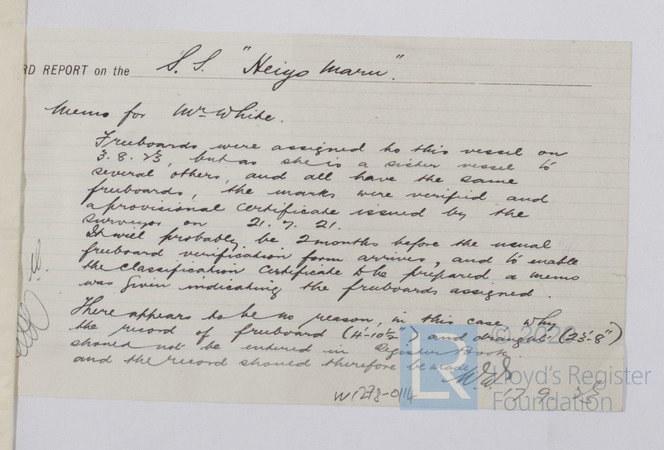 RD REPORT on the S.S. "Heiyo Maru".
Memo for Mr White.
Freeboards were assigned to this vessel on
3.8.23, but as she is a sister vessel to
several others, and all have the same
freeboards, the marks were verified and
a provisional certificate issued by the
surveyor on 21.7.21.
It will probably be 2 months before the usual
freeboard verification form arrives, and to enable
the classification certificate to be prepared a memo
was given indicating the freeboards assigned.
There appears to be no reason, in this case, why
the record of freeboard (4'-10½") and draught (23'-8")
should not be entered in Register Book
and the record should therefore be made
17.9.23
W1278-0114
© 2020
LR
Lloyd's Register
Foundation